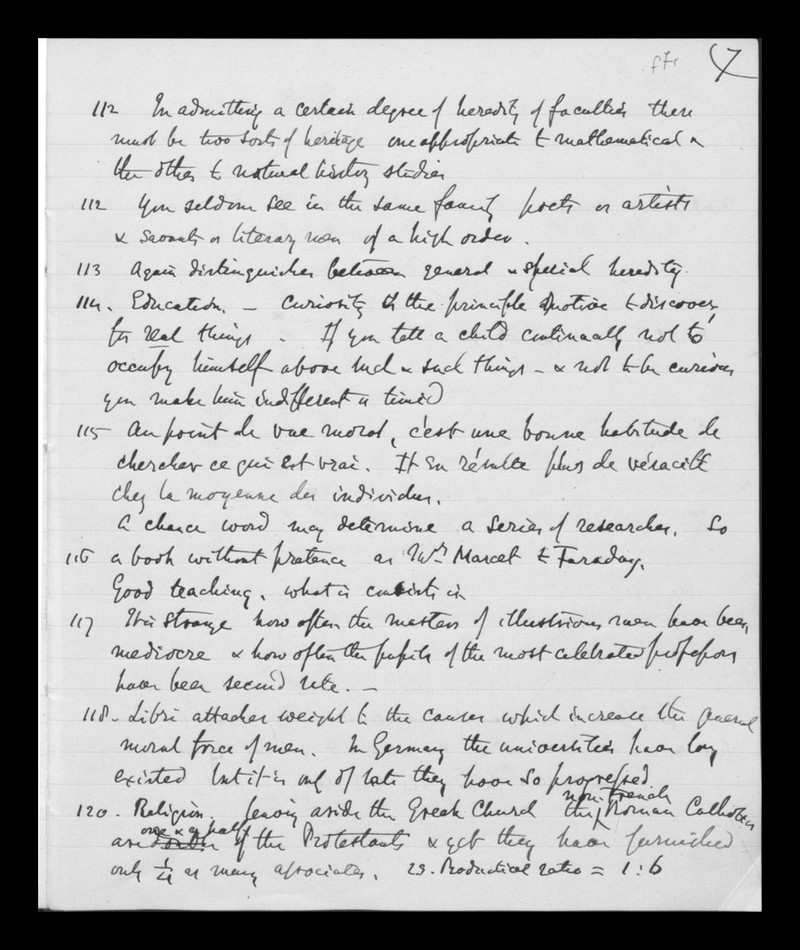 ff. 7
112 In admitting a certain degree of heredity of faculties there
must be two sorts of heritage one appropriate to mathematical &
the other to natural history studies
112 You seldom see in the same family poets or artists
& savants or literary men of a high order.
113 Again distinguishes between general & special heredity.
114. Education. – Curiosity is the principle motive to discovery
for real things. If you tell a child continually not to
occupy himself above such & such things – & not to be curious
you make him indifferent or timid
115 Au point de vue moral, c'est une bonne habitude de
chercher ce qui est vrai. Il en résulte plus de véracité
chez la moyenne des individus.
A chance word may determine a series of researches. So
116 a book without pretence as Mrs Marcet to Faraday.
Good teaching. what it consists in
117 It is strange how often the masters of illustrious men have been
mediocre & how often the pupils of the most celebrated professors
have been second rate. –
118. Libri attaches weight to the causes which increase the general
moral force of men. In Germany the universities have long
existed but it is only of late they have so progressed
non French
120. Religion. leaving aside the Greek Church the Roman Catholics
one & a half
are of the Protestants & yet they have furnished
only 1/4 as many associates. Productive ratio = 1:6